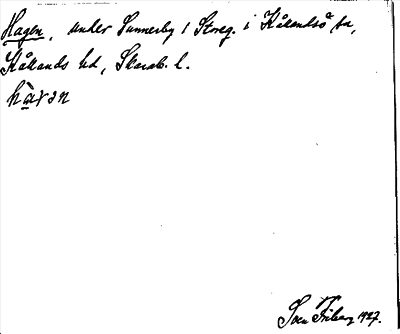 Hagen, under Sunnerby 1 Storeg. i Kållandsö sn,
Kållands hd, Skarab. l.
hàɣən
Sven Friberg 1927.